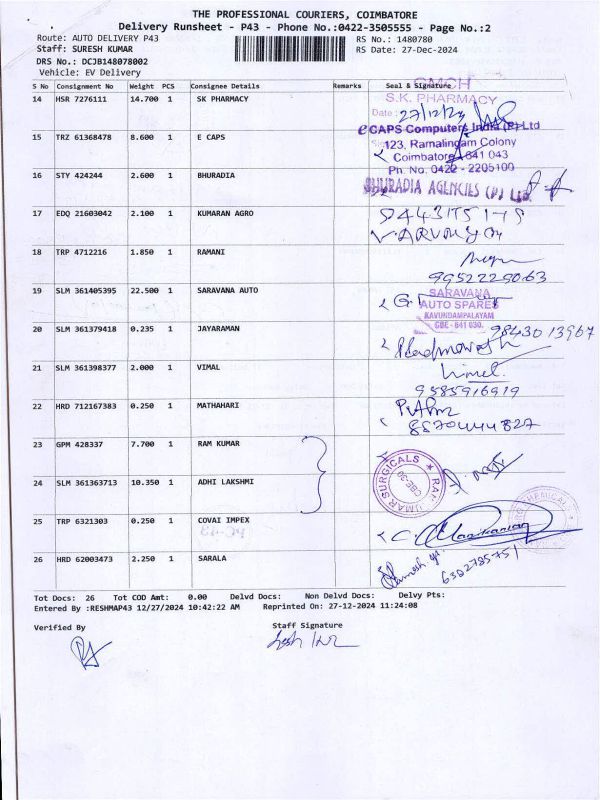 THE PROFESSIONAL COURIERS, COIMBATORE
Delivery Runsheet - P43 - Phone No.:0422-3505555 - Page No.:2
Route: AUTO DELIVERY P43 RS No.: 1480780
Staff: SURESH KUMAR RS Date: 27-Dec-2024
DRS No.: DCJB148078002
Vehicle: EV Delivery
S No Consignment No Weight PCS Consignee Details Remarks Seal & Signature
14 HSR 7276111 14.700 1 SK PHARMACY
GMCH
S.K. PHARMACY
Date: 27/12/24
15 TRZ 61368478 8.600 1 E CAPS
eCAPS Computers India (P) Ltd
123, Ramalingam Colony
Coimbatore - 641 043
Ph. No. 0422 - 2205100
16 STY 424244 2.600 1 BHURADIA
BHURADIA AGENCIES (P) Ltd
17 EDQ 21603042 2.100 1 KUMARAN AGRO
18 TRP 4712216 1.850 1 RAMANI
9952229063
19 SLM 361405395 22.500 1 SARAVANA AUTO
SARAVANA
AUTO SPARES
KAVUNDAMPALAYAM
CBE - 641 030.
20 SLM 361379418 0.235 1 JAYARAMAN
9843013967
21 SLM 361398377 2.000 1 VIMAL
Vimal
9585916919
22 HRD 712167383 0.250 1 MATHAHARI
23 GPM 428337 7.700 1 RAM KUMAR
24 SLM 361363713 10.350 1 ADHI LAKSHMI
RAM KUMAR SURGICALS
CBE-30
25 TRP 6321303 0.250 1 COVAI IMPEX
26 HRD 62003473 2.250 1 SARALA
6382785751
Tot Docs: 26 Tot COD Amt: 0.00 Delvd Docs: Non Delvd Docs: Delvy Pts:
Entered By :RESHMAP43 12/27/2024 10:42:22 AM Reprinted On: 27-12-2024 11:24:08
Verified By Staff Signature